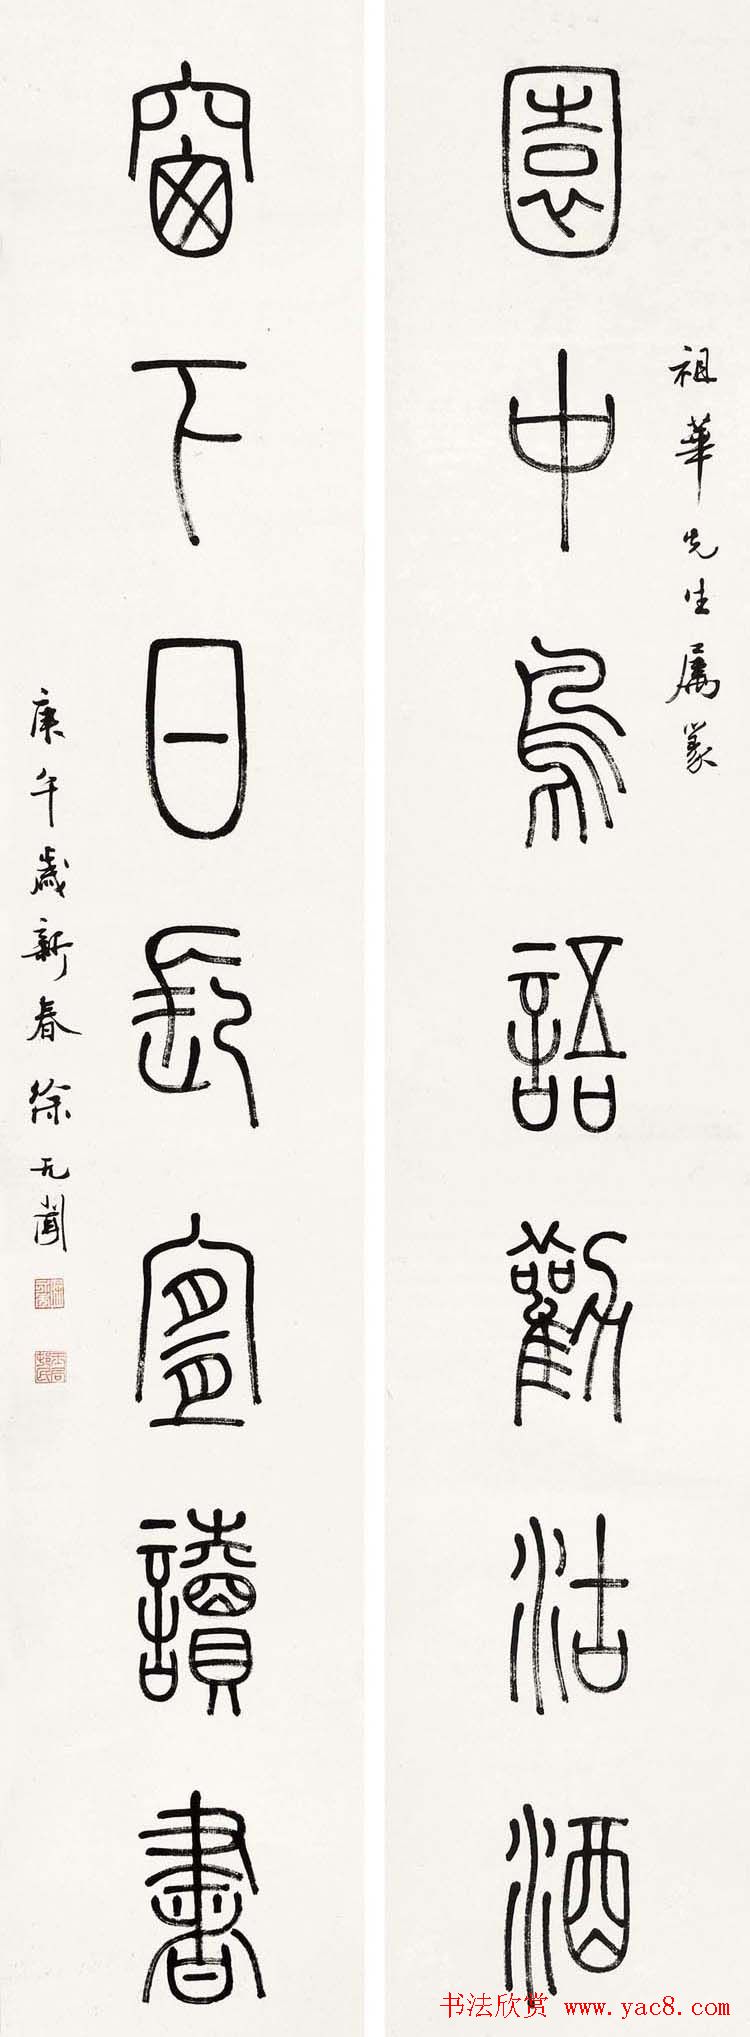 園中鳥語勸沽酒
祖華先生屬篆
窗下日長宜讀書
庚午歲新春徐无聞
书法欣赏 www.yac8.com